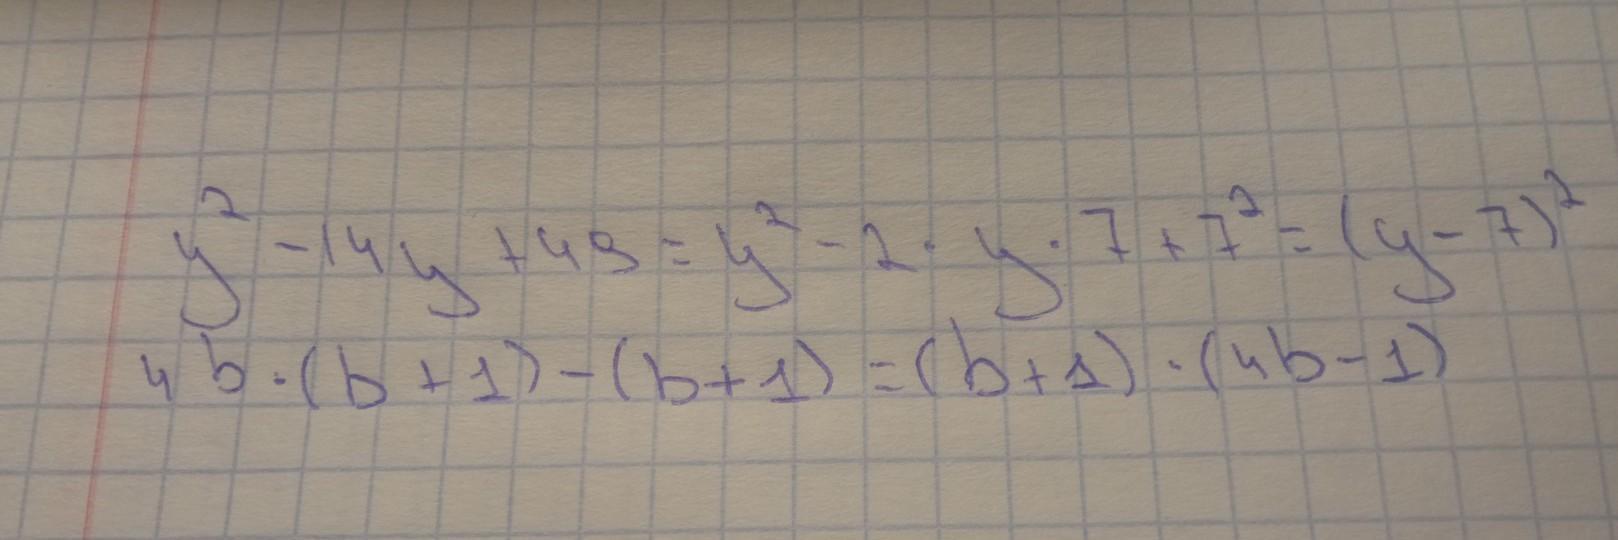 y² - 14y + 49 = y² - 2 · y · 7 + 7² = (y - 7)²
4b · (b + 1) - (b + 1) = (b + 1) · (4b - 1)